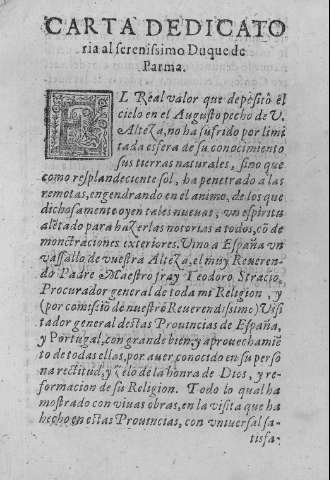 CARTA DEDICATO
ria al serenissimo Duque de
Parma.
EL Real valor que deposito el
cielo en el Augusto pecho de V.
Alteza, no ha sufrido por limi
tada esfera de su conocimiento
sus tierras naturales, sino que
como resplandeciente sol, ha penetrado a las
remotas, engendrando en el animo, de los que
dichosamente oyen tales nueuas, vn espiritu
alẽtado para hazerlas notorias a todos, cõ de
monstraciones exteriores. Vino a España vn
vassallo de vuestra Alteza, el muy Reueren-
do Padre Maestro fray Teodoro Stracio,
Procurador general de toda mi Religion, y
(por comissiõ de nuestro Reuerendissimo) Visi
tador general destas Prouincias de España,
y Portugal, con grande bien, y aprouechamiẽ
to de todas ellas, por auer conocido en su perso
na rectitud, y zelo de la honra de Dios, y re-
formacion de su Religion. Todo lo qual ha
mostrado con viuas obras, en la visita que ha
hecho en estas Prouincias, con vniuersal sa-
tisfa-